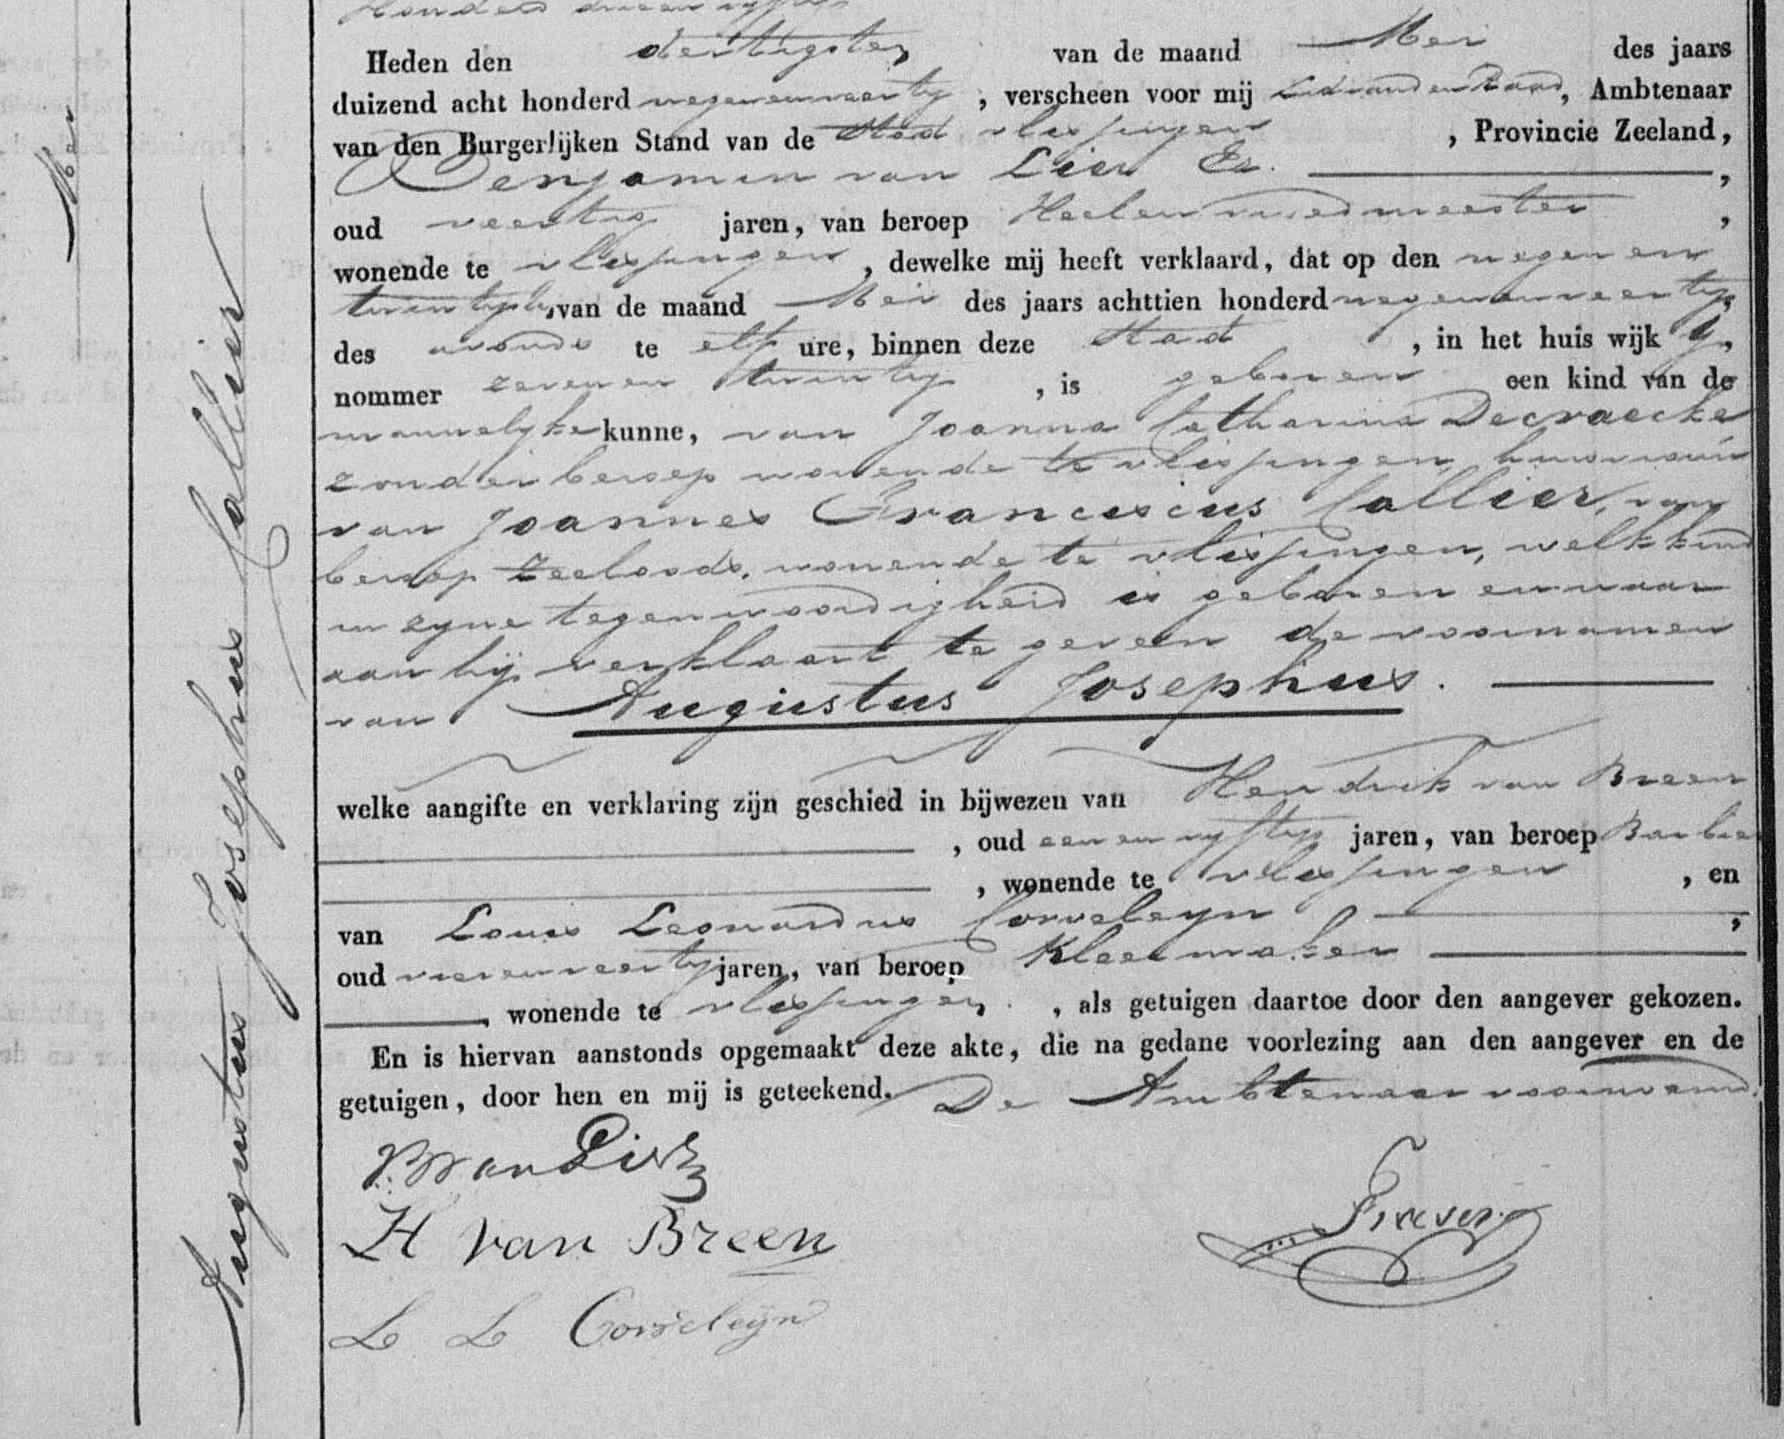 Heden den dertigsten van de maand Mei des jaars
duizend acht honderd negenenveertig, verscheen voor mij Lid van den Raad, Ambtenaar
van den Burgerlijken Stand van de Stad Vlissingen, Provincie Zeeland,
Benjamin van Lier Ez.,
oud veertig jaren, van beroep Heel en vroedmeester,
wonende te Vlissingen, dewelke mij heeft verklaard, dat op den negen en
twintigsten, van de maand Mei des jaars achttien honderd negenenveertig,
des avonds te elf ure, binnen deze Stad, in het huis wijk G,
nommer zeven en twintig, is geboren een kind van de
mannelyke kunne, van Joanna Catharina Decraecke
zonder beroep wonende te Vlissingen, huisvrouw
van Joannes Franciscus Callier, van
beroep Zeeloods, wonende te Vlissingen, welk kind
in zyne tegenwoordigheid is geboren en waar
aan hij verklaart te geven de voornamen
van Augustus Josephus.
welke aangifte en verklaring zijn geschied in bijwezen van Hendrik van Breen
, oud eenenvyftig jaren, van beroep Barbier
, wonende te Vlissingen, en
van Louis Leonardus Corveleyn,
oud vierenveertig jaren, van beroep Kleermaker
, wonende te Vlissingen, als getuigen daartoe door den aangever gekozen.
En is hiervan aanstonds opgemaakt deze akte, die na gedane voorlezing aan den aangever en de
getuigen, door hen en mij is geteekend. De Ambtenaar voornoemd.
B van Lier Ez
H van Breen
L L Corveleÿn
Augustus Josephus Callier